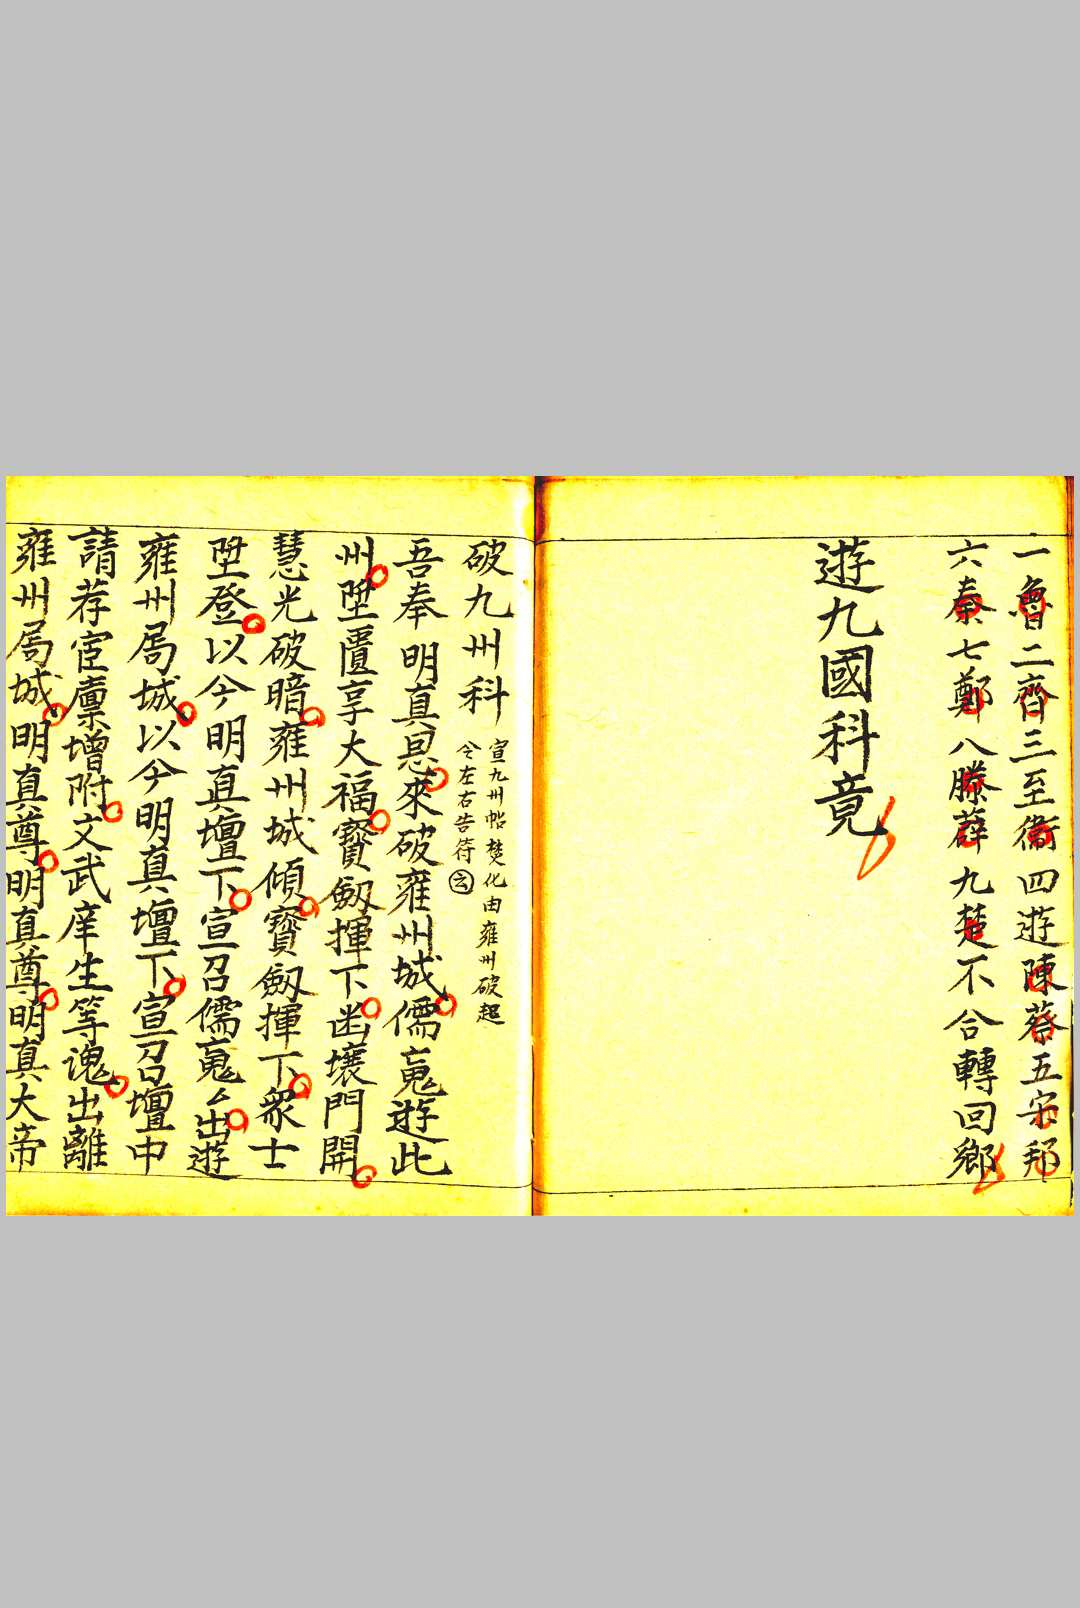 一魯二齊三至衞四遊陳蔡五宋邦
六秦七鄭八滕薛九楚不合轉回鄉
遊九國科竟
破九州科
宣九州帖焚化由雍州破起
仒左右告符㊁
吾奉明真恩來破雍州城儒䰟遊此
州墬匶享大福寳劔揮下凼壌門開
慧光破暗雍州城傾寳劔揮下衆士
墬登以今明真壇下宣召儒䰟々出遊
雍州局城以今明真壇下宣召壇中
請荐宦廪增附文武庠生等魂出離
雍州局城明真尊明真尊明真大帝